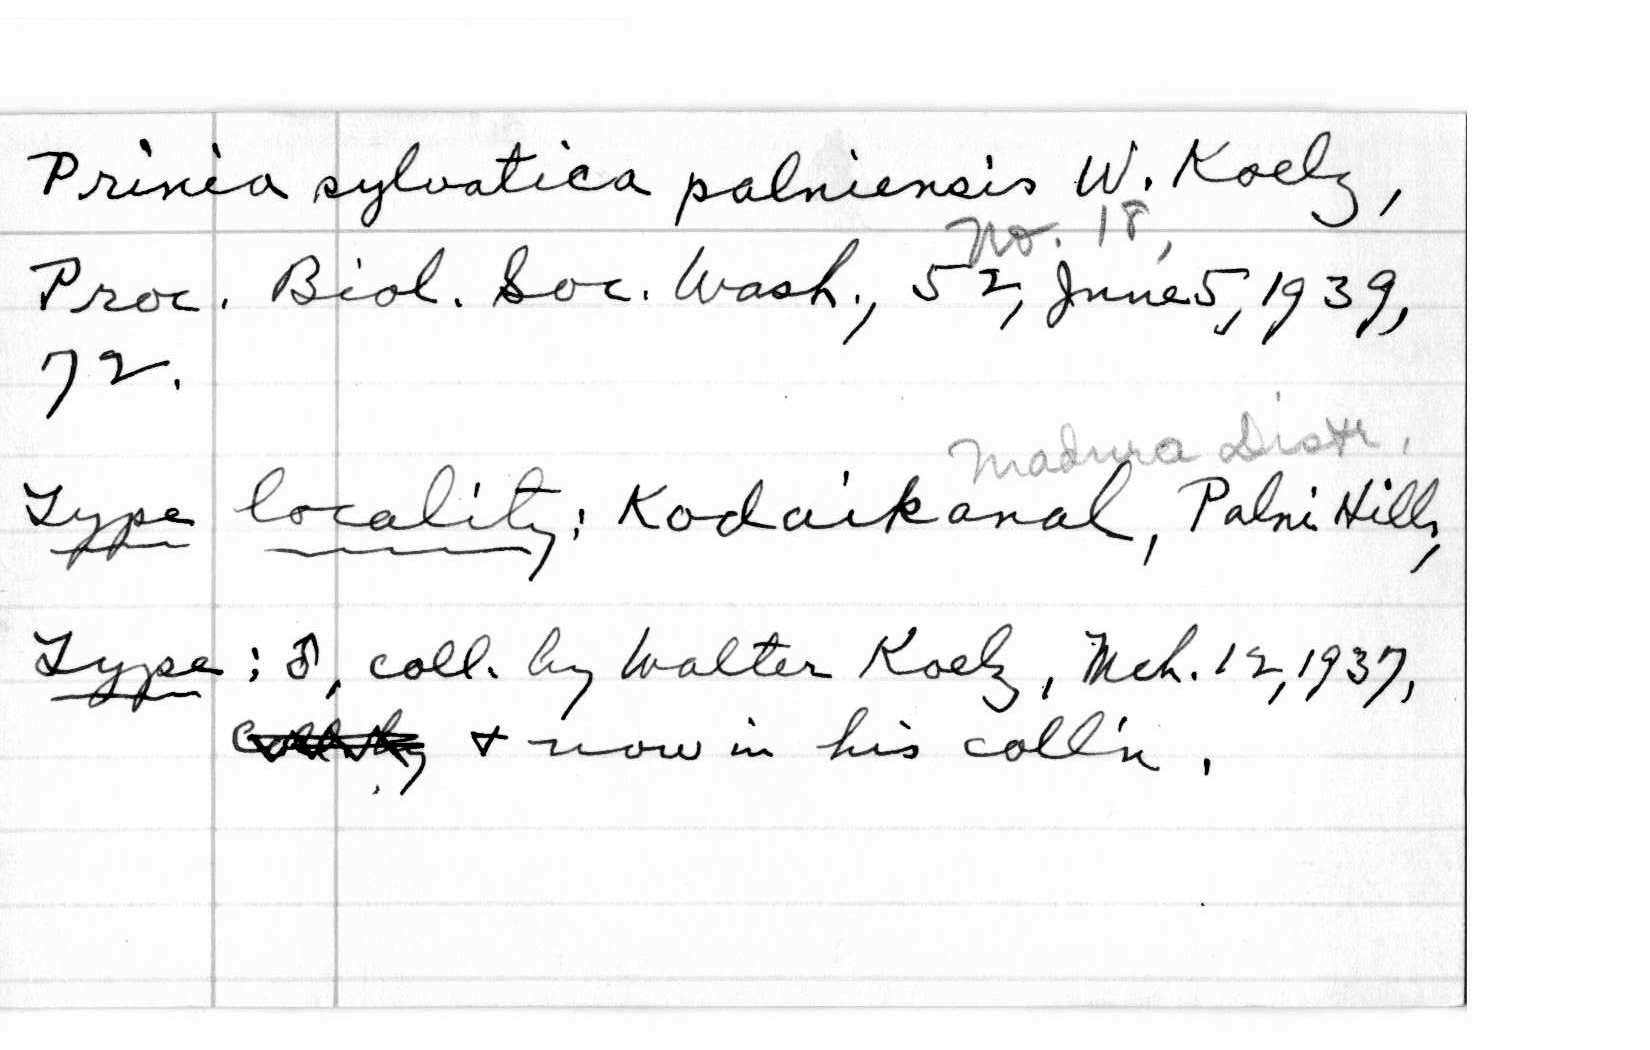 Prinia sylvatica palniensis W. Koelz,
No. 18,
Proc. Biol. Soc. Wash., 52, June 5, 1939,
72.
Madura Distr.
Type locality: Kodaikanal, Palni Hills,
Type: ♂, coll. by Walter Koelz, Mch. 12, 1937,
coll by & now in his coll'n.